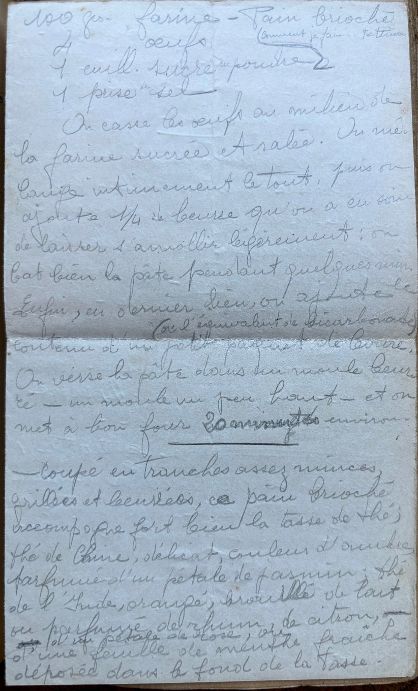 100 gr. farine - Pain brioché
4 œufs
1 cuill. sucre en poudre
1 prise sel
On casse les oeufs au milieu de
la farine sucrée et salée. On mé-
lange intimement le tout, puis on
ajoute 1/4 de beurre qu'on a eu soin
de laisser s'amollir légèrement ; on
bat bien la pâte pendant quelques min
Enfin, en dernier lieu, on ajoute le
(ou l'équivalent de bicarbonate)
contenu d'un petit paquet de levure.
On verse la pâte dans un moule beur
ré - un moule un peu haut - et on
met à bon four 20 minutes environ.
- Coupé en tranches assez minces,
grillées et beurrées, ce pain brioché
accompagne fort bien la tasse de thé,
thé de Chine, délicat, couleur d'ambre
parfumé d'un pétale de jasmin, thé
de l'Inde, orangé, brouillé de lait
ou parfumé de rhum, de citron,
d'un pétale de rose, ou
d'une feuille de menthe fraîche
déposée dans le fond de la tasse.